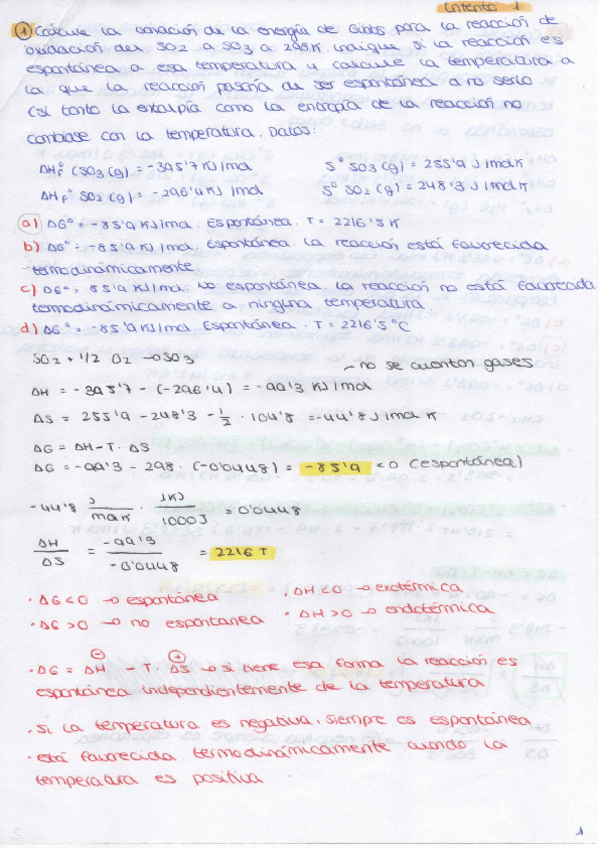 Intento 1
① Calcule la variación de la energía de Gibbs para la reacción de
oxidación del SO2 a SO3 a 298K. Indique si la reacción es
espontánea a esa temperatura y calcule la temperatura a
la que la reacción pasaría de ser espontánea a no serlo
(si tanto la entalpía como la entropía de la reacción no
cambiase con la temperatura. Datos:
ΔHf° (SO3 (g)) = -395'7 KJ/mol S° SO3 (g) = 255'9 J/mol K
ΔHf° SO2 (g) = -296'4 KJ/mol S° SO2 (g) = 248'3 J/mol K
a) ΔG° = -85'9 KJ/mol. Espontánea. T = 2216'5 K
b) ΔG° = -85'9 KJ/mol. Espontánea. La reacción está favorecida
termodinámicamente
c) ΔG° = 85'9 KJ/mol. No espontánea. La reacción no está favorecida
termodinámicamente a ninguna temperatura
d) ΔG° = -85'9 KJ/mol. Espontánea. T = 2216'5 °C
SO2 + 1/2 O2 → SO3
no se cuentan gases
ΔH = -395'7 - (-296'4) = -99'3 KJ/mol
ΔS = 255'9 - 248'3 - 1/2 · 104'8 = -44'8 J/mol K
ΔG = ΔH - T · ΔS
ΔG = -99'3 - 298 · (-0'0448) = -85'9 < 0 (espontánea)
-44'8 J/mol K · 1KJ/1000J = 0'0448
ΔH/ΔS = -99'3/-0'0448 = 2216 T
· ΔG < 0 → espontánea · ΔH < 0 → exotérmica
· ΔG > 0 → no espontanea · ΔH > 0 → endotérmica
· ΔG = ΔH⊖ - T · ΔS⊕ → si tiene esa forma la reacción es
espontánea independientemente de la temperatura
· Si la temperatura es negativa, siempre es espontánea
· está favorecida termodinámicamente cuando la
temperatura es positiva
1